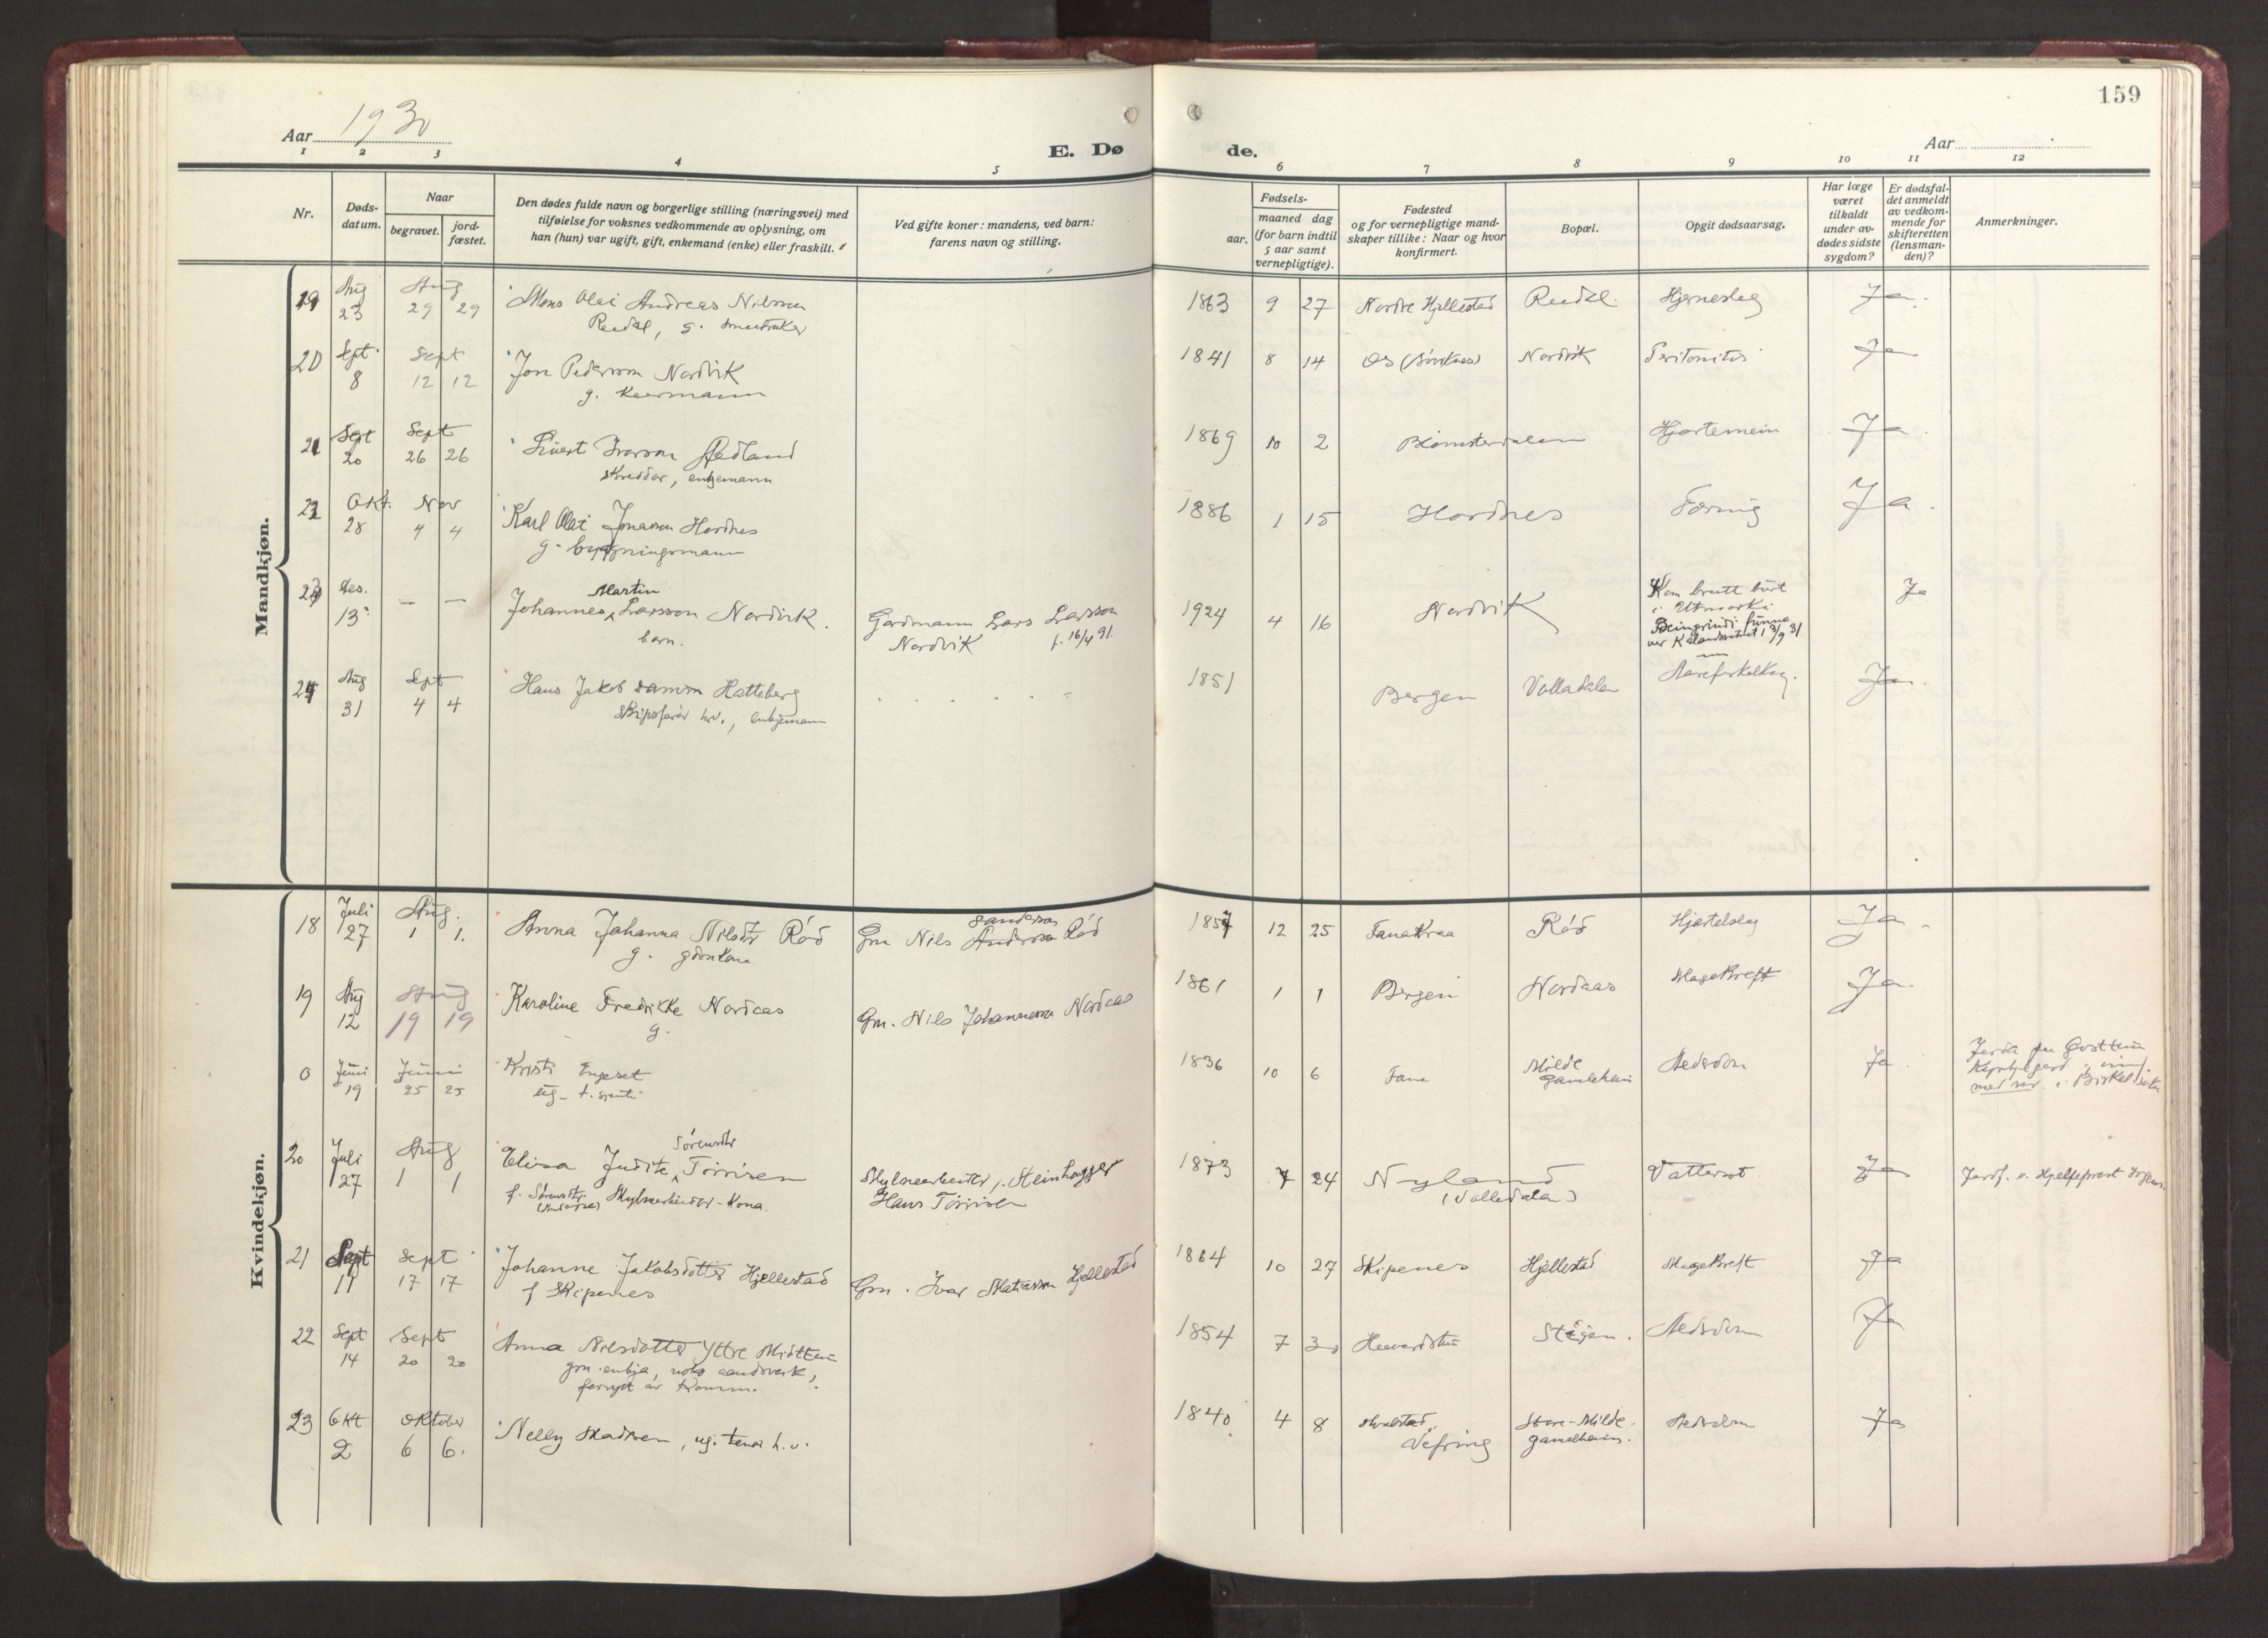 159
Aar 1930
E. Dø
de.
Aar
1 2 3 4 5 6 7 8 9 10 11 12
Nr.
Døds-
datum.
Naar
begravet.
jord-
fæstet.
Den dødes fulde navn og borgerlige stilling (næringsvei) med
tilføielse for voksnes vedkommende av oplysning, om
han (hun) var ugift, gift, enkemand (enke) eller fraskilt.
Ved gifte koner: mandens, ved barn:
farens navn og stilling.
Fødsels-
aar.
maaned dag
(for barn indtil
5 aar samt
vernepligtige).
Fødested
og for vernepligtige mand-
skaper tillike: Naar og hvor
konfirmert.
Bopæl.
Opgit dødsaarsag.
Har læge
været
tilkaldt
under av-
dødes sidste
sygdom?
Er dødsfal-
det anmeldt
av vedkom-
mende for
skifteretten
(lensman-
den)?
Anmerkninger.
Mandkjøn.
19 Aug 23 Aug 29 29 Mons Olai Andreas Nilsson 1863 9 27 Nordre Hjellestad Hjerneslag Ja
20 Sept 8 Sept 12 12 Jon Pederson Nordvik 1841 8 14 Os Nordvik Peritonitis Ja
g. kaarmann
21 Sept 20 Sept 26 26 Sivert Ivarson Rødland 1869 10 2 Blomsterdalen Hjartemein Ja
skreddar, enkjemann
22 Okt. 28 Nov 4 4 Karl Olai Jonasson Hordnes 1886 1 15 Hordnes Tæring Ja
g. bygningsmann
23 Des. 13 — — Johannes Martin Larsson Nordvik. Gardmann Lars Larsson 1924 4 16 Nordvik Kom brutt burt Ja
barn. Nordvik f. 16/4 91. i Utmarki
Beingrindi funne
24 Aug 31 Sept 4 4 Hans Jakob Hatteberg 1851 Bergen Valladalen Aareforkalkng. Ja
enkjemann
Kvindekjøn.
18 Juli 27 Aug. 1 1. Anna Johanna Nilsdtr Rød Gm Nils Anderson Rød 1857 12 25 Fanakraa Rød Hjarteslag Ja
g. gardkona
19 Aug 12 Aug 19 19 Karoline Fredrikke Nordaas Gm. Nils Johannesson Nordaas 1861 1 1 Bergen Nordaas Magekreft Ja
g.
0 Juni 19 Juni 25 25 Kristi Engeset 1836 10 6 Fana Milde Gamleheim Alderdom Ja
ug.
20 Juli 27 Aug 1 1 Elisa Judite Sørensdtr Tørrisen Mylnearbeider, Steinhogger 1873 7 24 Nyland Vattersot Ja
Mylnearbeidar-Kona. Hans Tørrisen (Valledalen)
21 Sept 11 Sept 17 17 Johanne Jakobsdotter Hjellestad Gm. Ivar Matiasson Hjellestad 1864 10 27 Skipenes Hjellestad Magekreft Ja
f Skipenes
22 Sept 14 Sept 20 20 Anna Nilsdotter Ytre Midttun 1854 7 30 Stigen. Alderdom Ja
gm. enkja,
23 Okt 2 Oktober 6 6. Nelly Madsen, ug. 1840 4 8 Vefring Store-Milde Gamleheim. Alderdom Ja